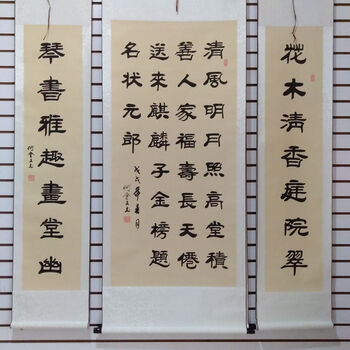 花木清香庭院翠
清風明月照高堂積
善人家福壽長天僊
送來麒麟子金榜題
名狀元郎
戊戌年
琴書雅趣畫堂幽